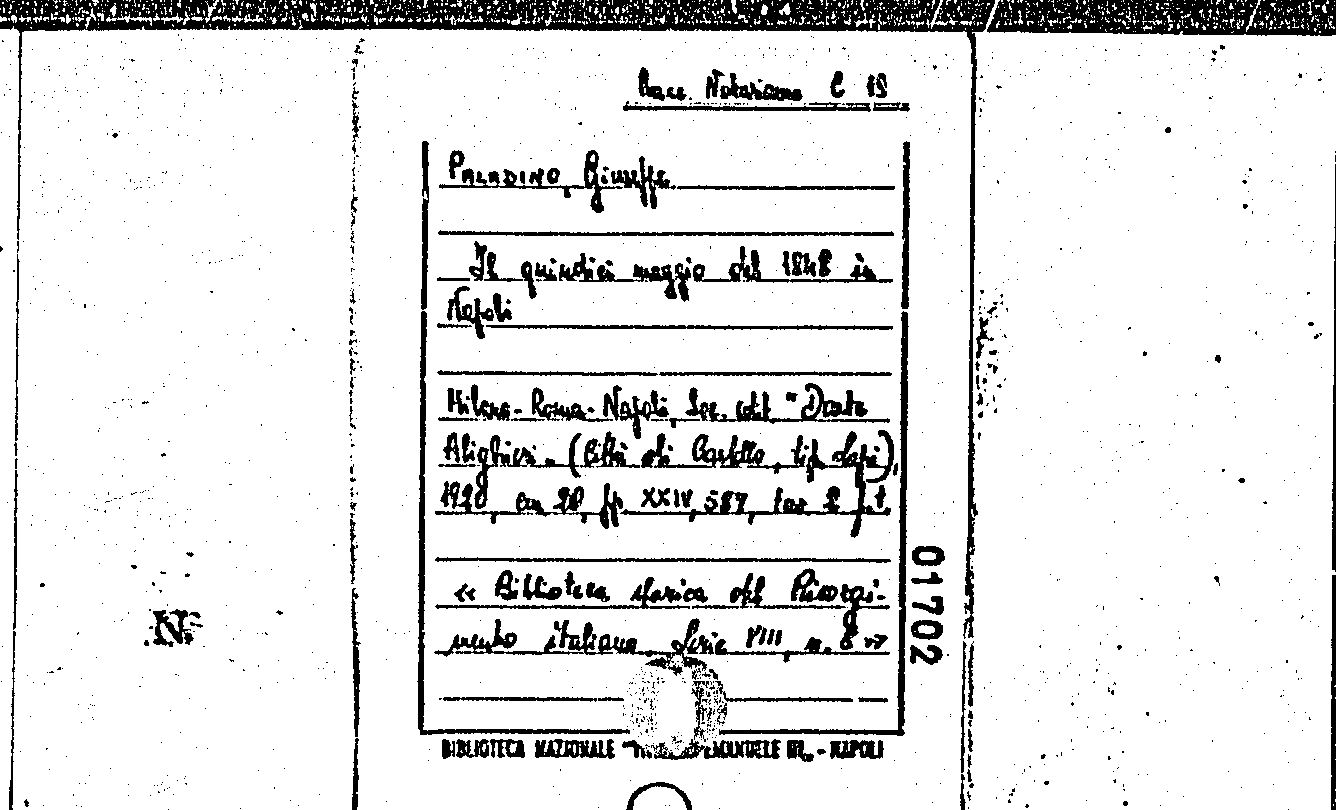 Racc. Notariano C 19
PALADINO, Giuseppe
Il quindici maggio del 1848 in
Napoli
Milano-Roma-Napoli, Soc. edit. "Dante
Alighieri" (Città di Castello, tip. Lapi),
1920, cm 20, pp. XXIV, 587, tav 2 f.t.
« Biblioteca storica del Risorgi-
mento italiano, Serie VIII, n. 8 »
01702
N
BIBLIOTECA NAZIONALE EMANUELE III„ - NAPOLI